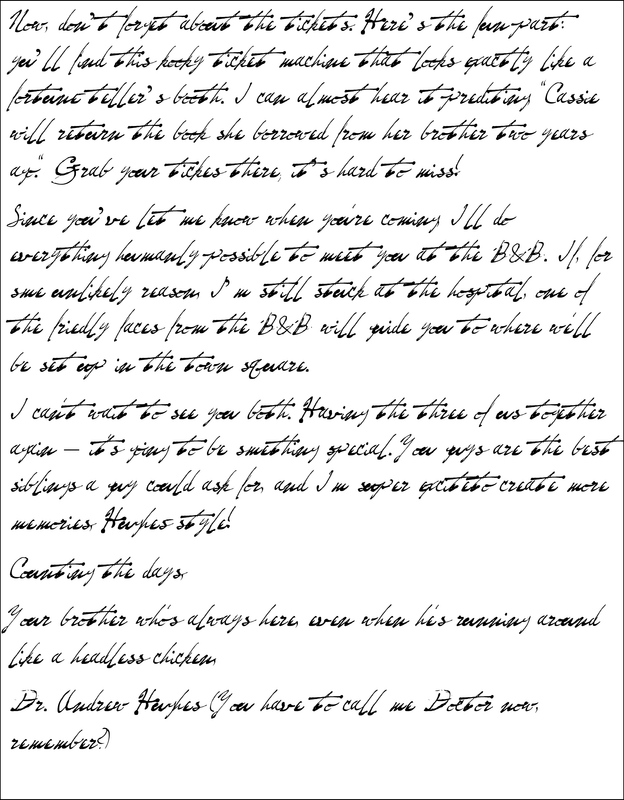 Now, don't forget about the tickets. Here's the fun part:
you'll find this kooky ticket machine that looks exactly like a
fortune teller's booth. I can almost hear it prediting "Cassie
will return the book she borrowed from her brother two years
ago." Grab your tickes there, it's hard to miss!
Since you've let me know when you're coming, I'll do
everything humanly possible to meet you at the B&B. If, for
sme unlikely reason, I'm still stuck at the hospital, one of
the friedly faces from the B&B will guide you to where we'll
be set up in the town square.
I can't wait to see you both. Having the three of us together
again — it's going to be smething special. You guys are the best
siblings a guy could ask for, and I'm super excited to create more
memories, Hughes style!
Counting the days,
Your brother who's always here, even when he's running around
like a headless chicken,
Dr. Andrew Hughes (You have to call me Doctor now,
remember?)